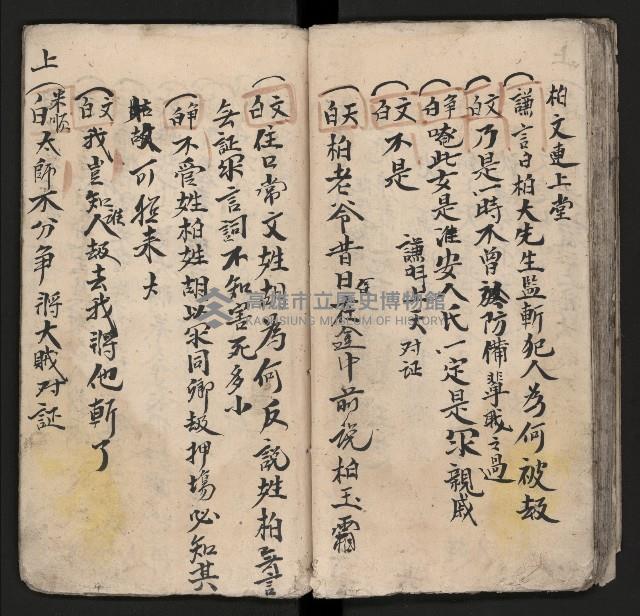 柏文連上堂
謙言曰柏大先生監斬犯人為何被劫
文白乃是一時不曾於防備輩戝之過
爭白唵此女是淮安人氏一定是你親戚
文白不是 謙明上天对証
天白柏老爷昔日在登中前説柏玉霜
文白住口常文姓胡為何反説姓柏無言
無証你言詞不知害死多小
爭白不管姓柏姓胡以你同卿劫押場必知其
故可從来大
文白我豈知誰人劫去我將他斬了
上
米順白太師不分争將大賊对証
高雄市立歷史博物館
KAOHSIUNG MUSEUM OF HISTORY